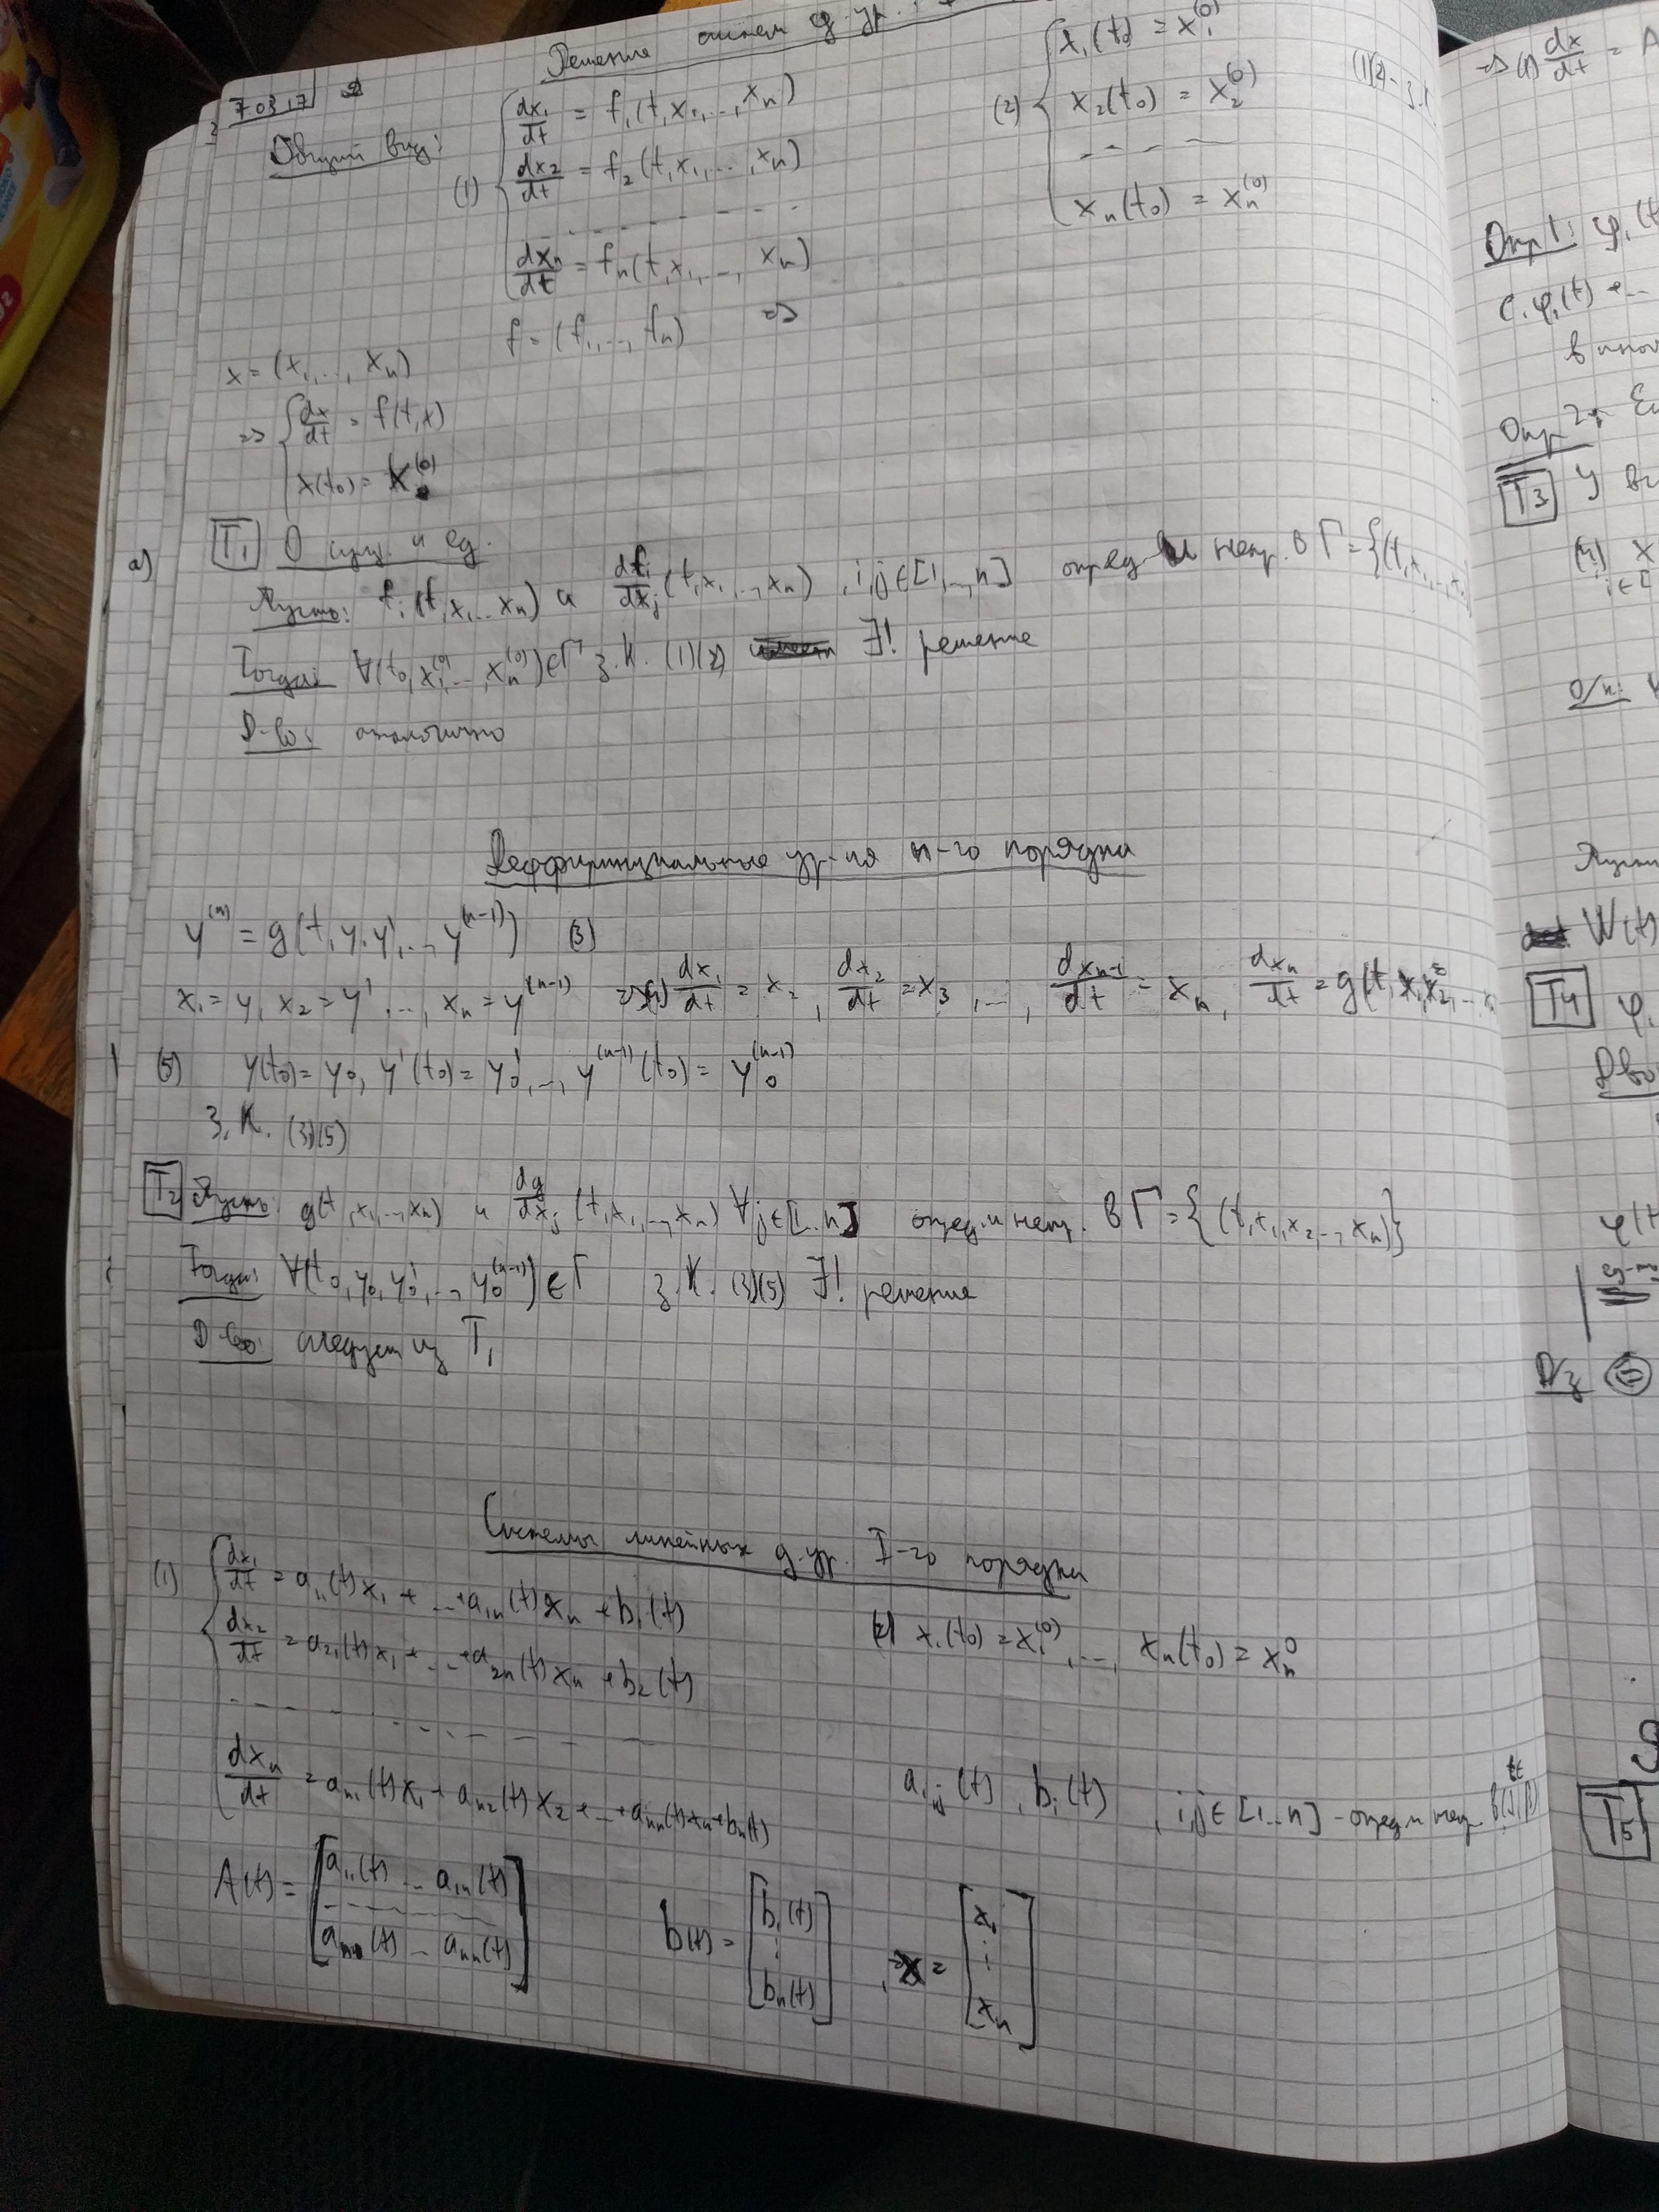 7 03 17
Решение систем д. ур.
Общий вид:
(1) { dx₁/dt = f₁(t, x₁, ..., xₙ)
dx₂/dt = f₂(t, x₁, ..., xₙ)
- - - - - - -
dxₙ/dt = fₙ(t, x₁, ..., xₙ)
(2) { x₁(t₀) = x₁⁽⁰⁾
x₂(t₀) = x₂⁽⁰⁾
- - - -
xₙ(t₀) = xₙ⁽⁰⁾
(1)(2) - З.К.
x = (x₁, ..., xₙ) f = (f₁, ..., fₙ) =>
=> { dx/dt = f(t, x)
x(t₀) = x⁽⁰⁾
а) T₁ О сущ. и ед.
Пусть: fᵢ(t, x₁ ... xₙ) и dfᵢ/dxⱼ (t, x₁, ..., xₙ), i,j ∈ [1, .., n] опред и непр. в Γ = {(t, x₁, ..., xₙ)
Тогда: ∀(t₀, x₁⁽⁰⁾, ..., xₙ⁽⁰⁾) ∈ Γ з.К. (1)(2) ∃! решение
D-во: аналогично
Деффиринциальные ур-ия n-го порядка
y⁽ⁿ⁾ = g(t, y, y', .., y⁽ⁿ⁻¹⁾) (3)
x₁ = y, x₂ = y', ..., xₙ = y⁽ⁿ⁻¹⁾ => dx₁/dt = x₂, dx₂/dt = x₃, ..., dxₙ₋₁/dt = xₙ, dxₙ/dt = g(t, x₁, x₂, ... x
(5) y(t₀) = y₀, y'(t₀) = y₀', .., y⁽ⁿ⁻¹⁾(t₀) = y₀⁽ⁿ⁻¹⁾
З.К. (3)(5)
T₂ Пусть: g(t, x₁, .., xₙ) и dg/dxⱼ (t, x₁, .., xₙ) ∀j ∈ [1..n] опред. и непр. в Γ = {(t, x₁, x₂, .., xₙ)}
Тогда: ∀(t₀, y₀, y₀', .., y₀⁽ⁿ⁻¹⁾) ∈ Γ з.К. (3)(5) ∃! решение
D-во: следует из T₁
Системы линейных д. ур. I-го порядка
(1) { dx₁/dt = a₁₁(t)x₁ + ... + a₁ₙ(t)xₙ + b₁(t)
dx₂/dt = a₂₁(t)x₁ + ... + a₂ₙ(t)xₙ + b₂(t)
- - - - - - - - -
dxₙ/dt = aₙ₁(t)x₁ + aₙ₂(t)x₂ + ... + aₙₙ(t)xₙ + bₙ(t)
(2) x₁(t₀) = x₁⁽⁰⁾, ..., xₙ(t₀) = xₙ⁰
aᵢⱼ(t), bᵢ(t), i,j ∈ [1..n] - опред и непр.
A(t) = [a₁₁(t) ... a₁ₙ(t)
- - - - - -
aₙ₁(t) ... aₙₙ(t)]
b(t) = [b₁(t)
⋮
bₙ(t)]
, x = [x₁
⋮
xₙ]
=> (1) dx/dt = A
Опр 1: φ₁(t
C₁φ₁(t) + ...
Опр 2:
T₃ У
O/н:
W(t)
T₄ φ₁
D-во
φ(t
D/з
T₅